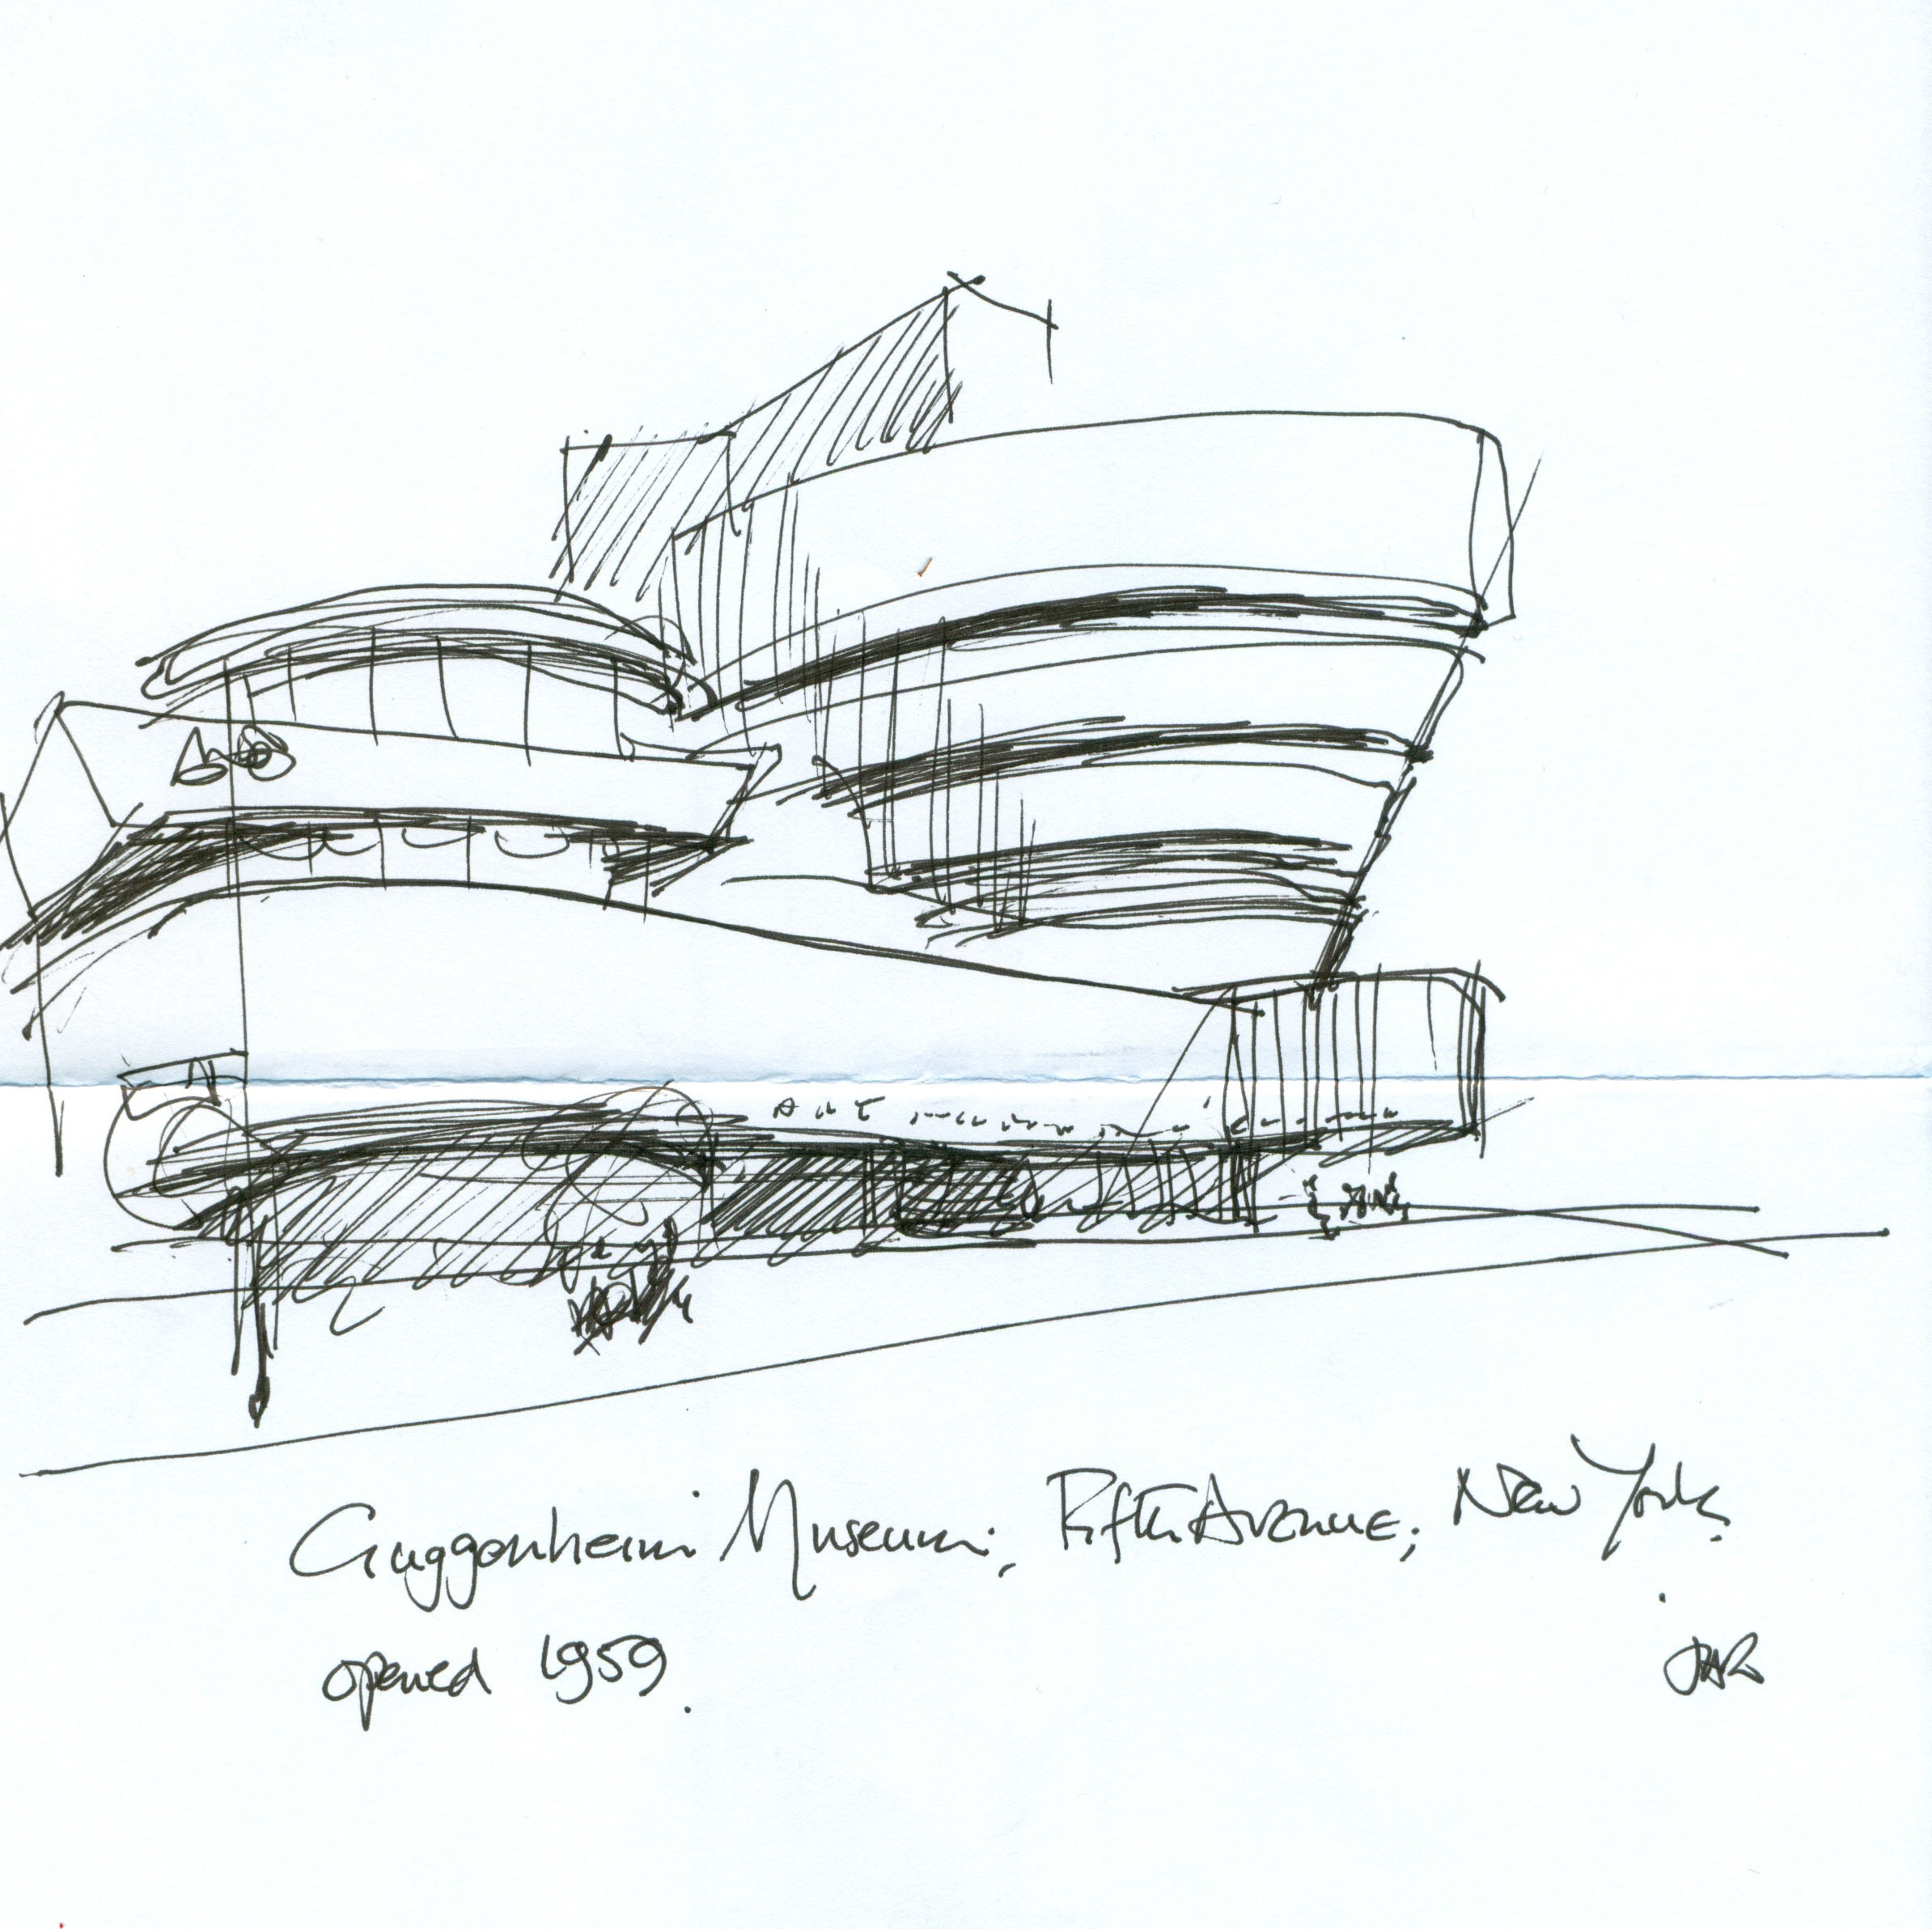 Guggenheim Museum, Fifth Avenue, New York.
opened 1959.